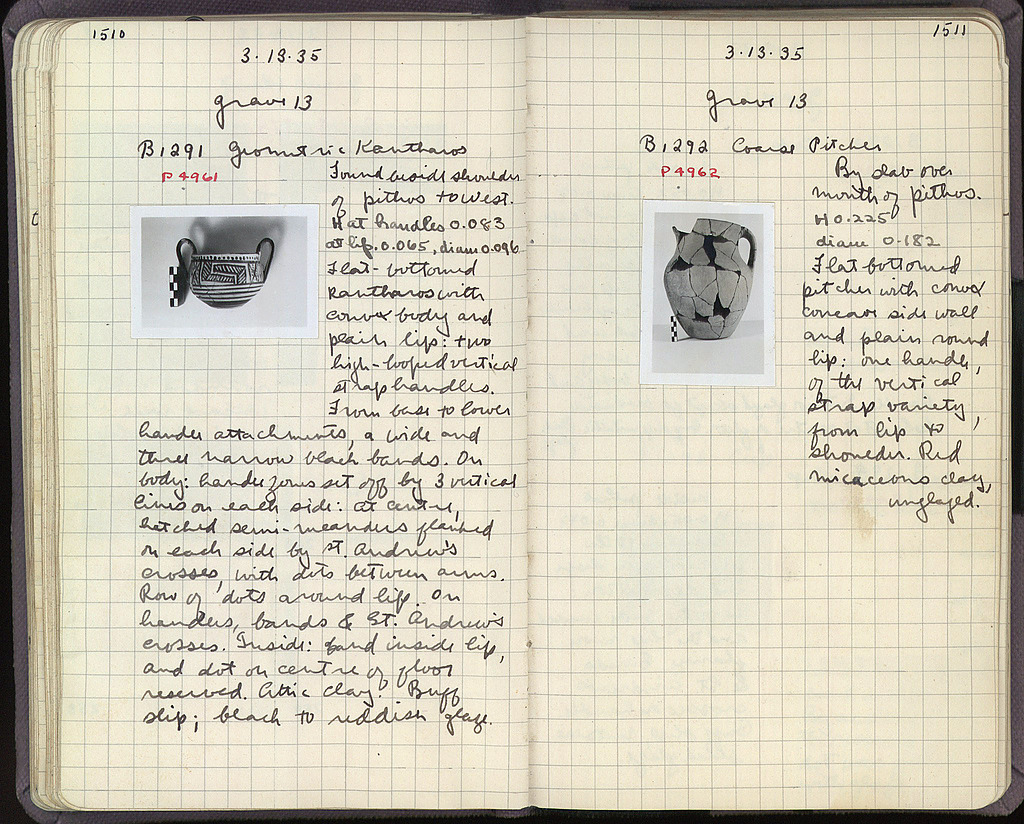 1510
3·13·35
grave 13
B1291 Geometric Kantharos
P 4961
Found beside shoulder
of pithos to west.
H at handles 0.083
at lip. 0.065, diam 0.096
Flat-bottomed
Kantharos with
convex body and
plain lip: two
high-looped vertical
strap handles.
From base to lower
handle attachments, a wide and
three narrow black bands. On
body: handle zones set off by 3 vertical
lines on each side: at centre,
hatched semi-meanders flanked
on each side by St. Andrew's
crosses, with dots between arms.
Row of dots around lip. On
handles, bands & St. Andrew's
crosses. Inside: band inside lip,
and dot on centre of floor
reserved. Attic clay. Buff
slip; black to reddish glaze.
1511
3·13·35
Grave 13
B1292 Coarse Pitcher
P 4962
By slab over
mouth of pithos.
H 0.225
diam 0.182
Flat bottomed
pitcher with convex
concave side wall
and plain round
lip: one handle,
of the vertical
strap variety,
from lip to
shoulder. Red
micaceous clay,
unglazed.
t